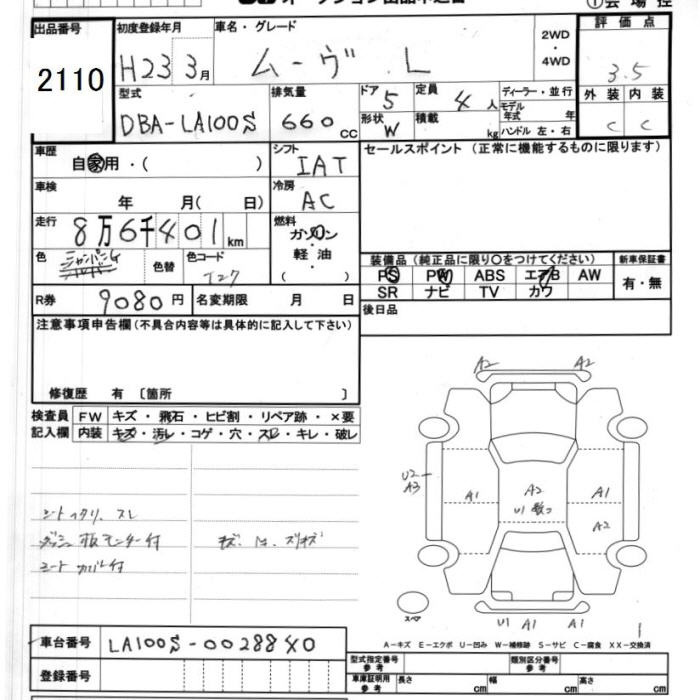 オークション出品申込書
①会場控
出品番号
2110
初度登録年月
H23 3月
車名・グレード
ムーヴ L
2WD
・
4WD
評価点
3.5
型式
DBA-LA100S
排気量
660 cc
ドア
5
形状
W
定員
4 人
積載
kg
ディーラー・並行
モデル年式 年
ハンドル 左・右
外装 内装
C C
車歴
自家用・( )
シフト
IAT
車検
年 月( 日)
冷房
AC
走行
8万6千401km
燃料
ガソリン
・
軽油
( )
色
シャンパンG
色替
色コード
T27
R券
9080円
名変期限 月 日
セールスポイント (正常に機能するものに限ります)
装備品 (純正品に限り〇をつけてください)
PS PW ABS エアB AW
SR ナビ TV カワ
新車保証書
有・無
後日品
注意事項申告欄(不具合内容等は具体的に記入して下さい)
修復歴 有 〔箇所 〕
検査員
記入欄
FW キズ・飛石・ヒビ割・リペア跡・×要
内装 キズ・汚レ・コゲ・穴・スレ・キレ・破レ
シートヘタリ、スレ
ダッシュ板モニター付
シートカバー付
A2 A2
U2
A3
A1
A2
U1
A1
A2
スペア
U1 A1 A1
A-キズ E-エクボ U-凹み W-補修跡 S-サビ C-腐食 XX-交換済
車台番号
LA100S-0028840
登録番号
型式指定番号
参考
類別区分番号
参考
車庫証明用
参考
長さ cm 幅 cm 高さ cm